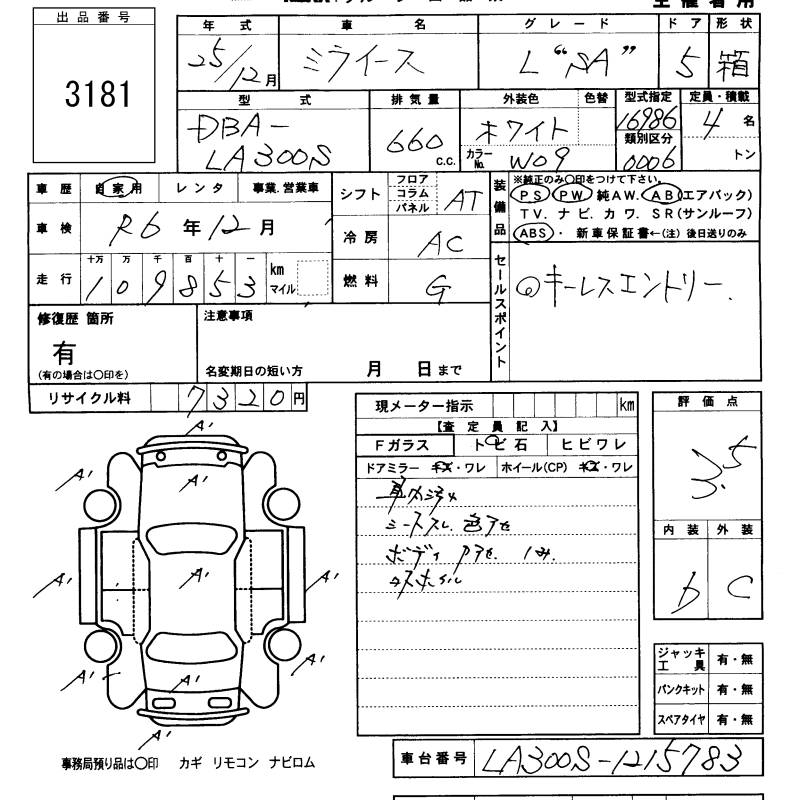 出品番号
3181
年式
25/12月
車名
ミライース
グレード
L "SA"
ドア
5
形状
箱
型式
DBA-
LA300S
排気量
660
C.C.
外装色
ホワイト
色替
カラーNo.
W09
型式指定
16986
類別区分
0006
定員・積載
4名
トン
車歴
自家用 レンタ 事業.営業車
車検
R6年12月
走行
十万 万 千 百 十 一
109853
km
マイル
シフト
フロア
コラム
パネル
AT
冷房
AC
燃料
G
装備品
※純正のみ〇印をつけて下さい。
PS PW 純AW. AB(エアバック)
TV. ナビ. カワ. SR(サンルーフ)
ABS・ 新車保証書←(注) 後日送りのみ
セールスポイント
キーレスエントリー.
修復歴 箇所
有
(有の場合は〇印を)
注意事項
名変期日の短い方 月 日まで
リサイクル料
7320円
現メーター指示
km
【査定員記入】
Fガラス トビ石 ヒビワレ
ドアミラー キズ・ワレ ホイール(CP) キズ・ワレ
車内汚れ
シートスレ. 色アセ
ボディ アセ.
評価点
3.5
内装 外装
b C
A'
A' A' A'
A' A' A'
A' A'
A'
ジャッキ
工具
有・無
パンクキット 有・無
スペアタイヤ 有・無
事務局預り品は〇印 カギ リモコン ナビロム
車台番号
LA300S-1215783